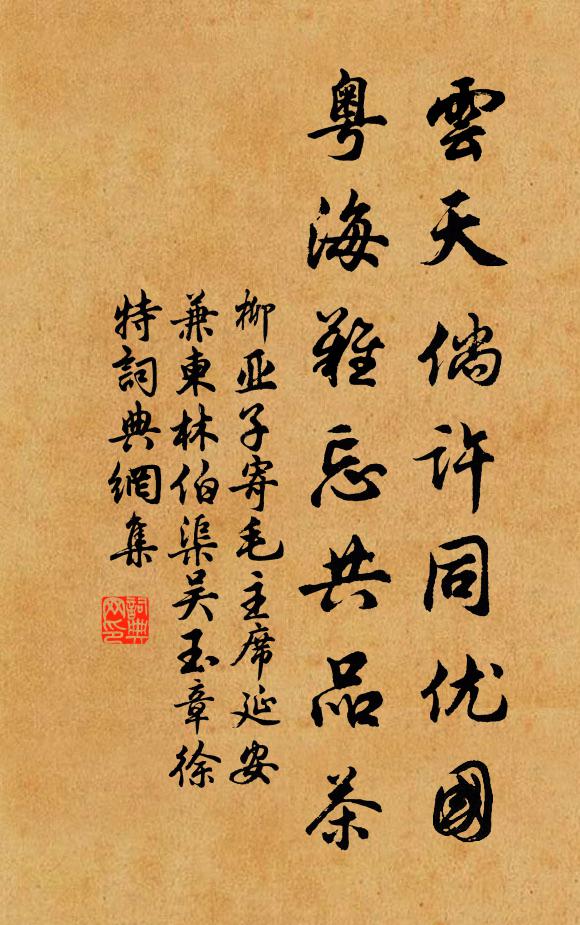 雲天倘许同优國
粤海難忘共品茶
柳亚子寄毛主席延安
兼柬林伯渠吴玉章徐
特詞典網集
詞典网印